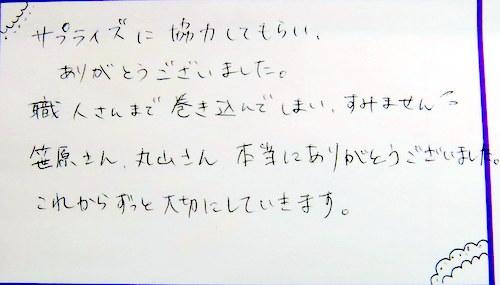 サプライズに協力してもらい、
ありがとうございました。
職人さんまで巻き込んでしまい、すみません
笹原さん、丸山さん 本当にありがとうございました。
これからずっと大切にしていきます。